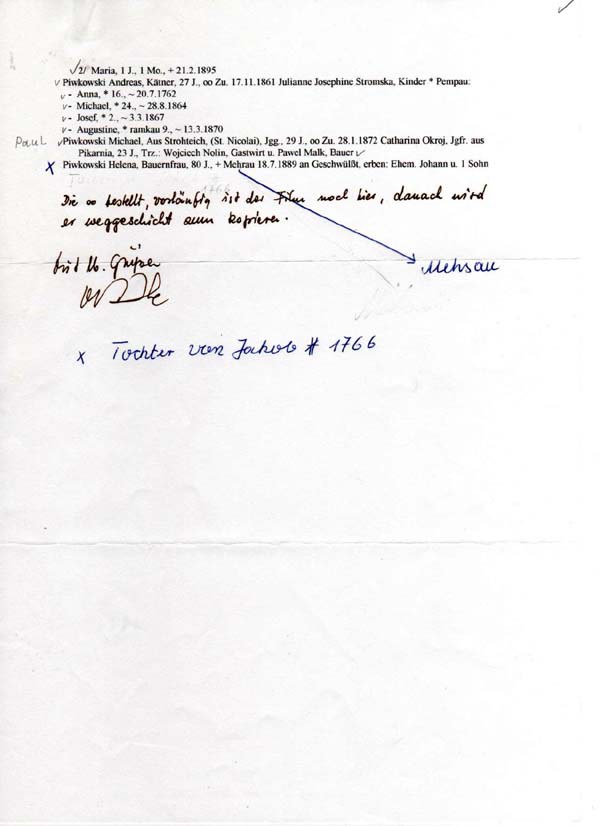 √2/ Maria, 1 J., 1 Mo., + 21.2.1895
√ Piwkowski Andreas, Kätner, 27 J., oo Zu. 17.11.1861 Julianne Josephine Stromska, Kinder * Pempau:
√ - Anna, * 16., ~ 20.7.1762
√ - Michael, * 24., ~ 28.8.1864
√ - Josef, * 2., ~ 3.3.1867
√ - Augustine, * ramkau 9., ~ 13.3.1870
Paul √ Piwkowski Michael, Aus Strohteich, (St. Nicolai), Jgg., 29 J., oo Zu. 28.1.1872 Catharina Okroj, Jgfr. aus
Pikarnia, 23 J., Trz.: Wojciech Nolin, Gastwirt u. Pawel Malk, Bauer √
x Piwkowski Helena, Bauernfrau, 80 J., + Mehrau 18.7.1889 an Geschwülßt, erben: Ehem. Johann u. 1 Sohn
1766
Die oo bestellt, vorläufig ist der Film noch hier, danach wird
er weggeschickt zum kopieren.
Mit fr. Grüßen
Mehsau
x Tochter von Jakob # 1766